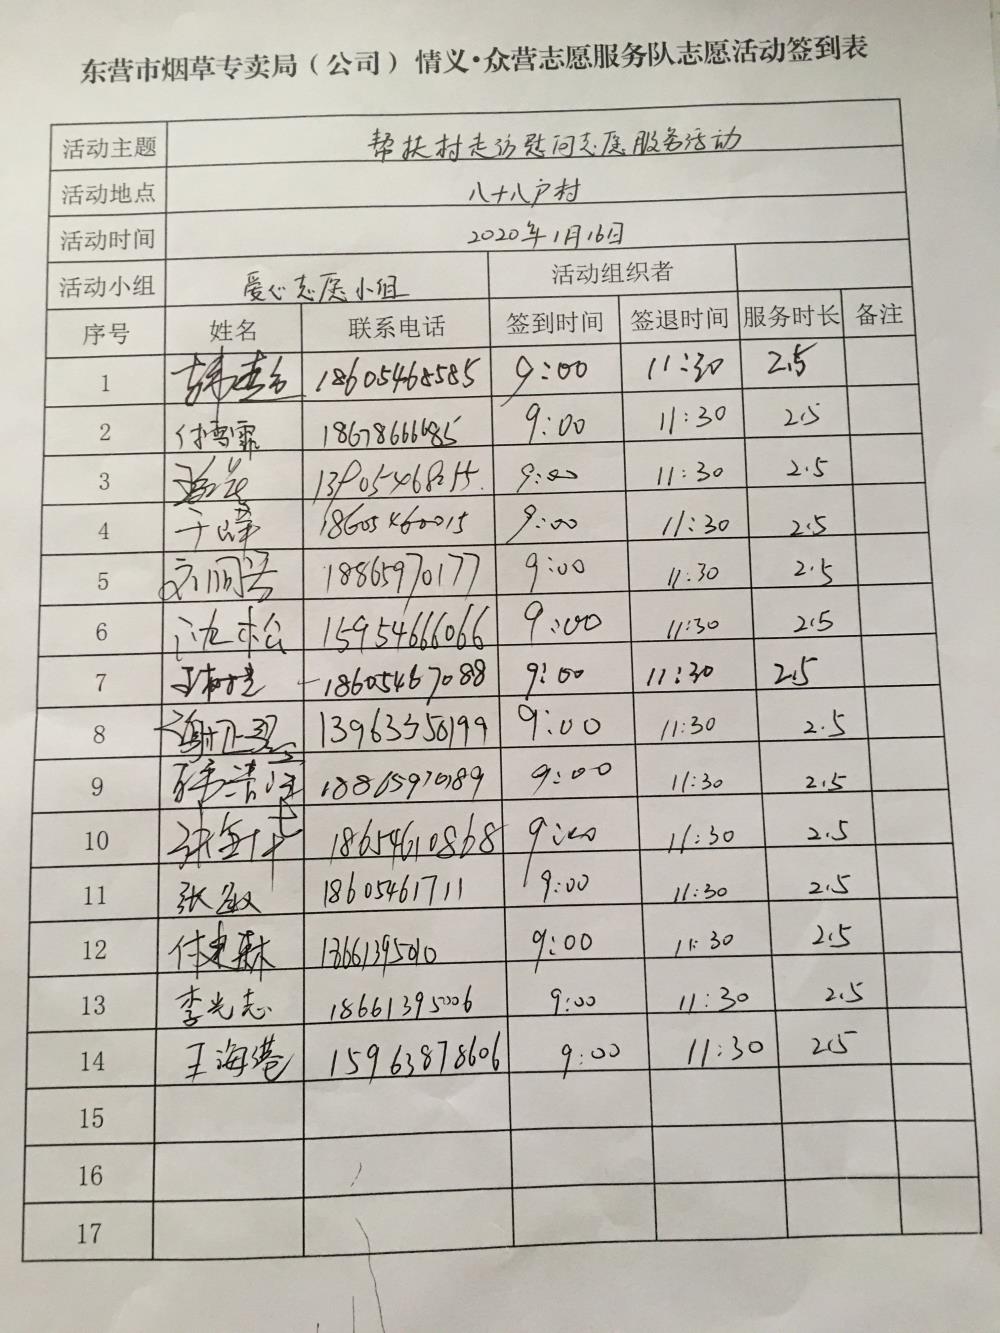 东营市烟草专卖局（公司）情义·众营志愿服务队志愿活动签到表
活动主题 帮扶村走访慰问志愿服务活动
活动地点 八十八户村
活动时间 2020年1月16日
活动小组 爱心志愿小组 活动组织者
序号 姓名 联系电话 签到时间 签退时间 服务时长 备注
1 18605468585 9:00 11:30 2.5
2 付雪霏 9:00 11:30 2.5
3 9:00 11:30 2.5
4 于峰 18605460015 9:00 11:30 2.5
5 18865970177 9:00 11:30 2.5
6 沈松 15954666066 9:00 11:30 2.5
7 18605467088 9:00 11:30 2.5
8 9:00 11:30 2.5
9 18865970189 9:00 11:30 2.5
10 18654610868 9:00 11:30 2.5
11 张敏 18605461711 9:00 11:30 2.5
12 9:00 11:30 2.5
13 李光志 18661395006 9:00 11:30 2.5
14 王海港 15963878606 9:00 11:30 2.5
15
16
17